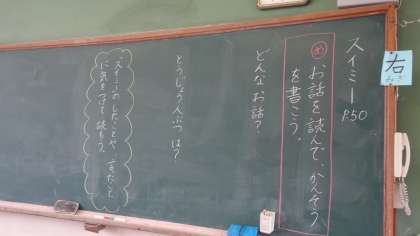 スイミー P.50
め お話を読んで、かんそう
を書こう。
どんな お話？
とうじょうじんぶつ は？
スイミーのしたことや 言ったことに
に気をつけて 読もう。
右